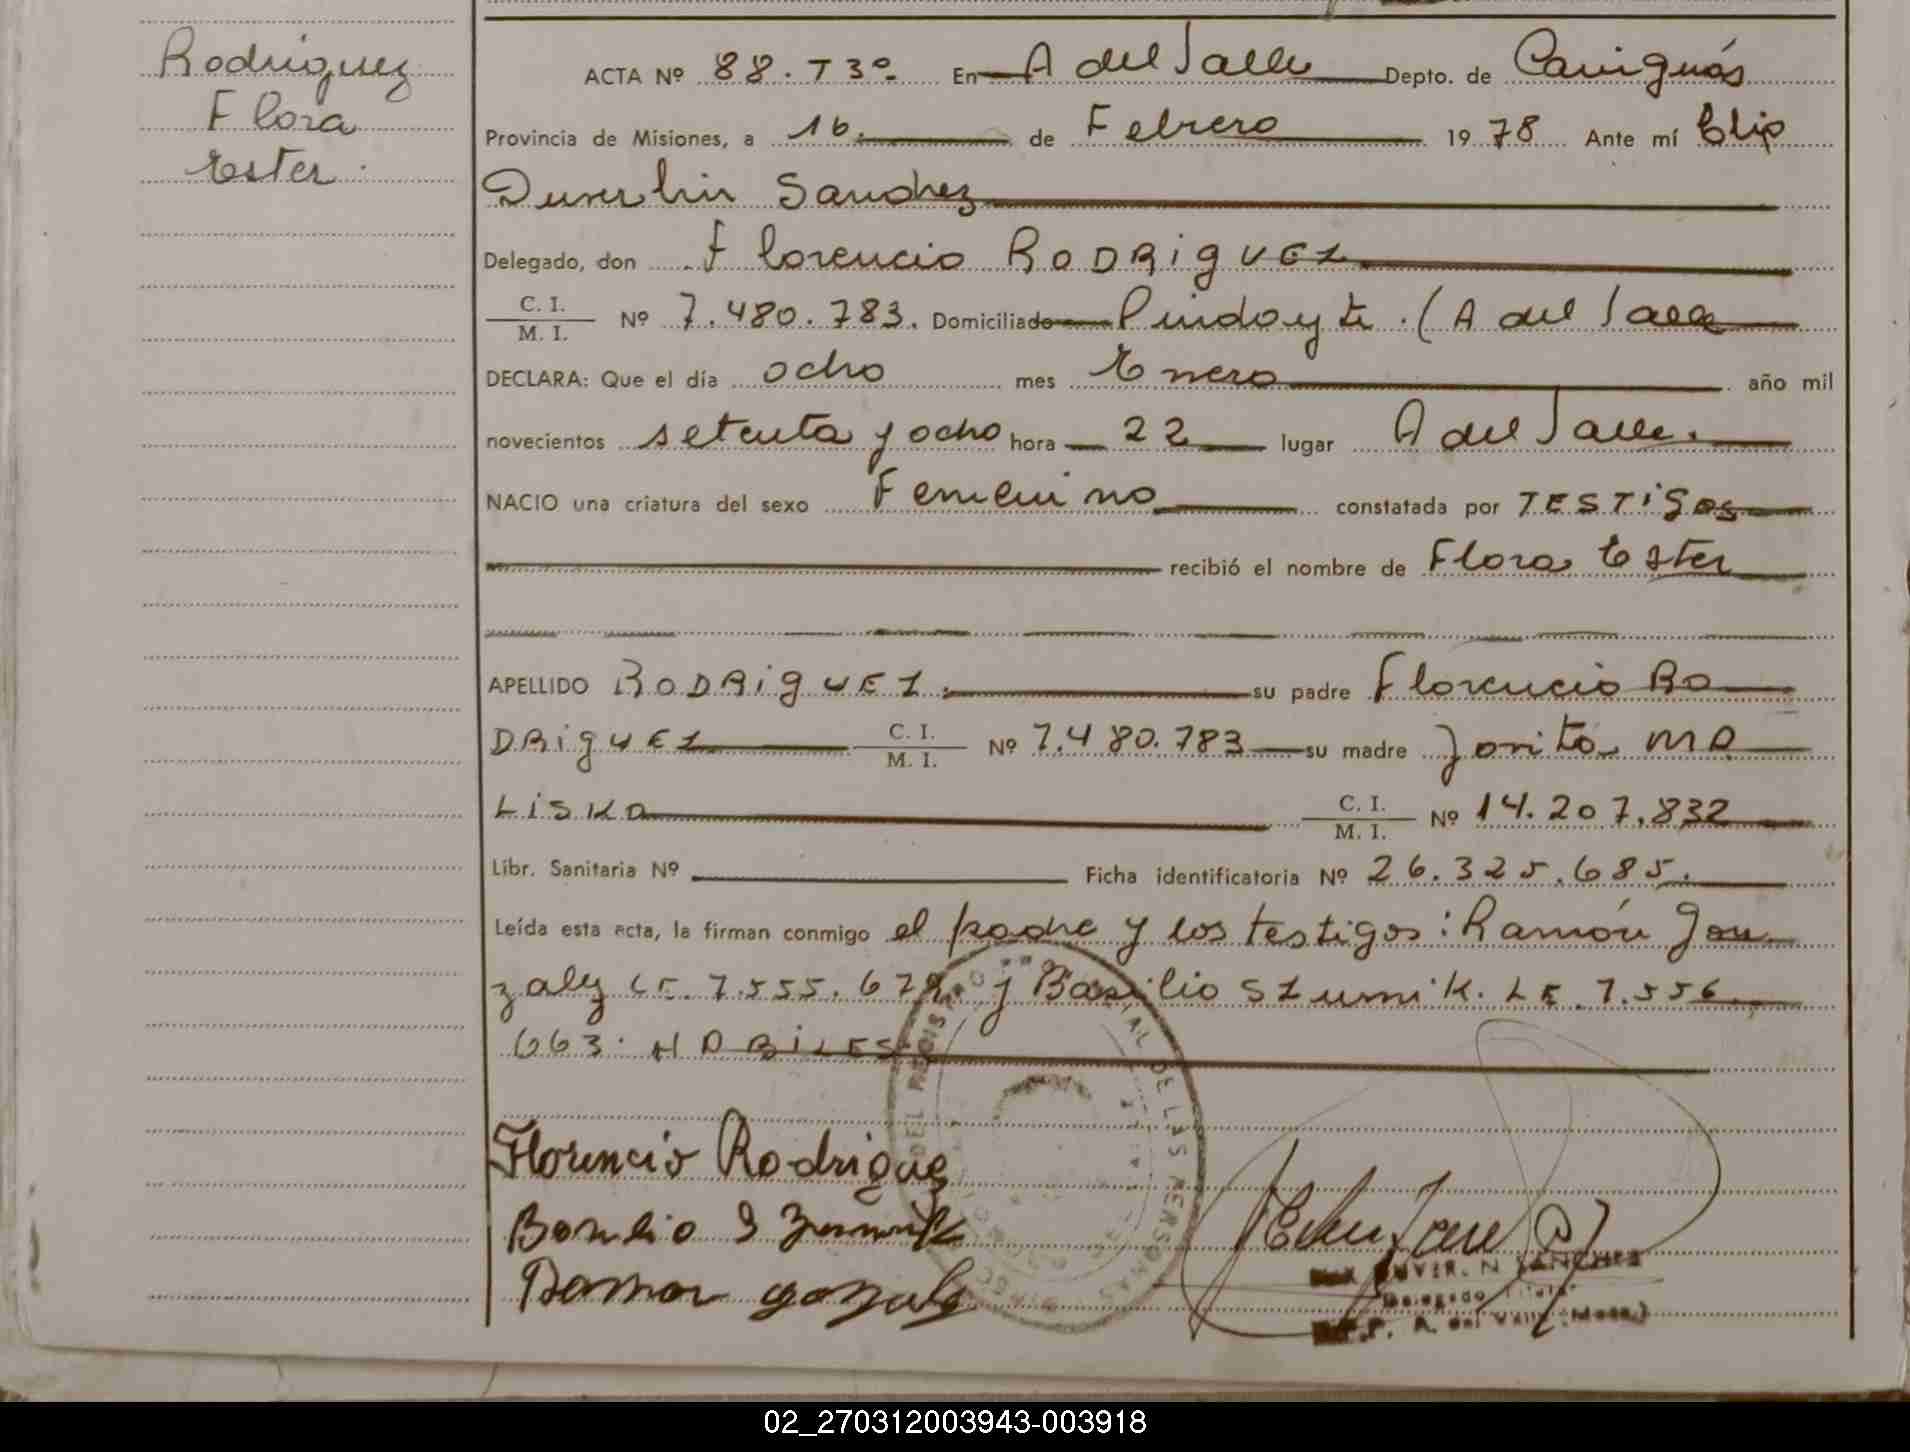 Rodriguez
Flora
Ester.
ACTA Nº 88. T3º. En A del Valle Depto. de Cainguás
Provincia de Misiones, a 16. de Febrero 1978 Ante mí Elip
Duverlin Sanchez
Delegado, don Florencio RODRigUEZ
C. I.
M. I. Nº 7.480.783. Domiciliado Pindoyti. (A del Valle
DECLARA: Que el día ocho mes Enero año mil
novecientos setenta y ocho hora 22 lugar A del Valle.
NACIO una criatura del sexo Femenino constatada por TESTigos
recibió el nombre de Flora Ester
APELLIDO RODRigUEZ. su padre Florencio RO
DRigUEZ C. I.
M. I. Nº 7.480.783 su madre Jonita MA
LiSKA C. I.
M. I. Nº 14.207.832
Libr. Sanitaria Nº Ficha identificatoria Nº 26.325.685.
Leída esta acta, la firman conmigo el padre y los testigos: Ramón Gon
zalez LE. 7.555.679 y Basilio SZumik. LE. 7.556
663. HABiLES
Florencio Rodriguez
Basilio Szumik
Ramon gonzalez
DEL REGISTRO PROVINCIAL DE LAS PERSONAS
DUVER. N SANCHEZ
Delegado Titular
R.P. A. del Valle (Mnes.)
02_270312003943-003918